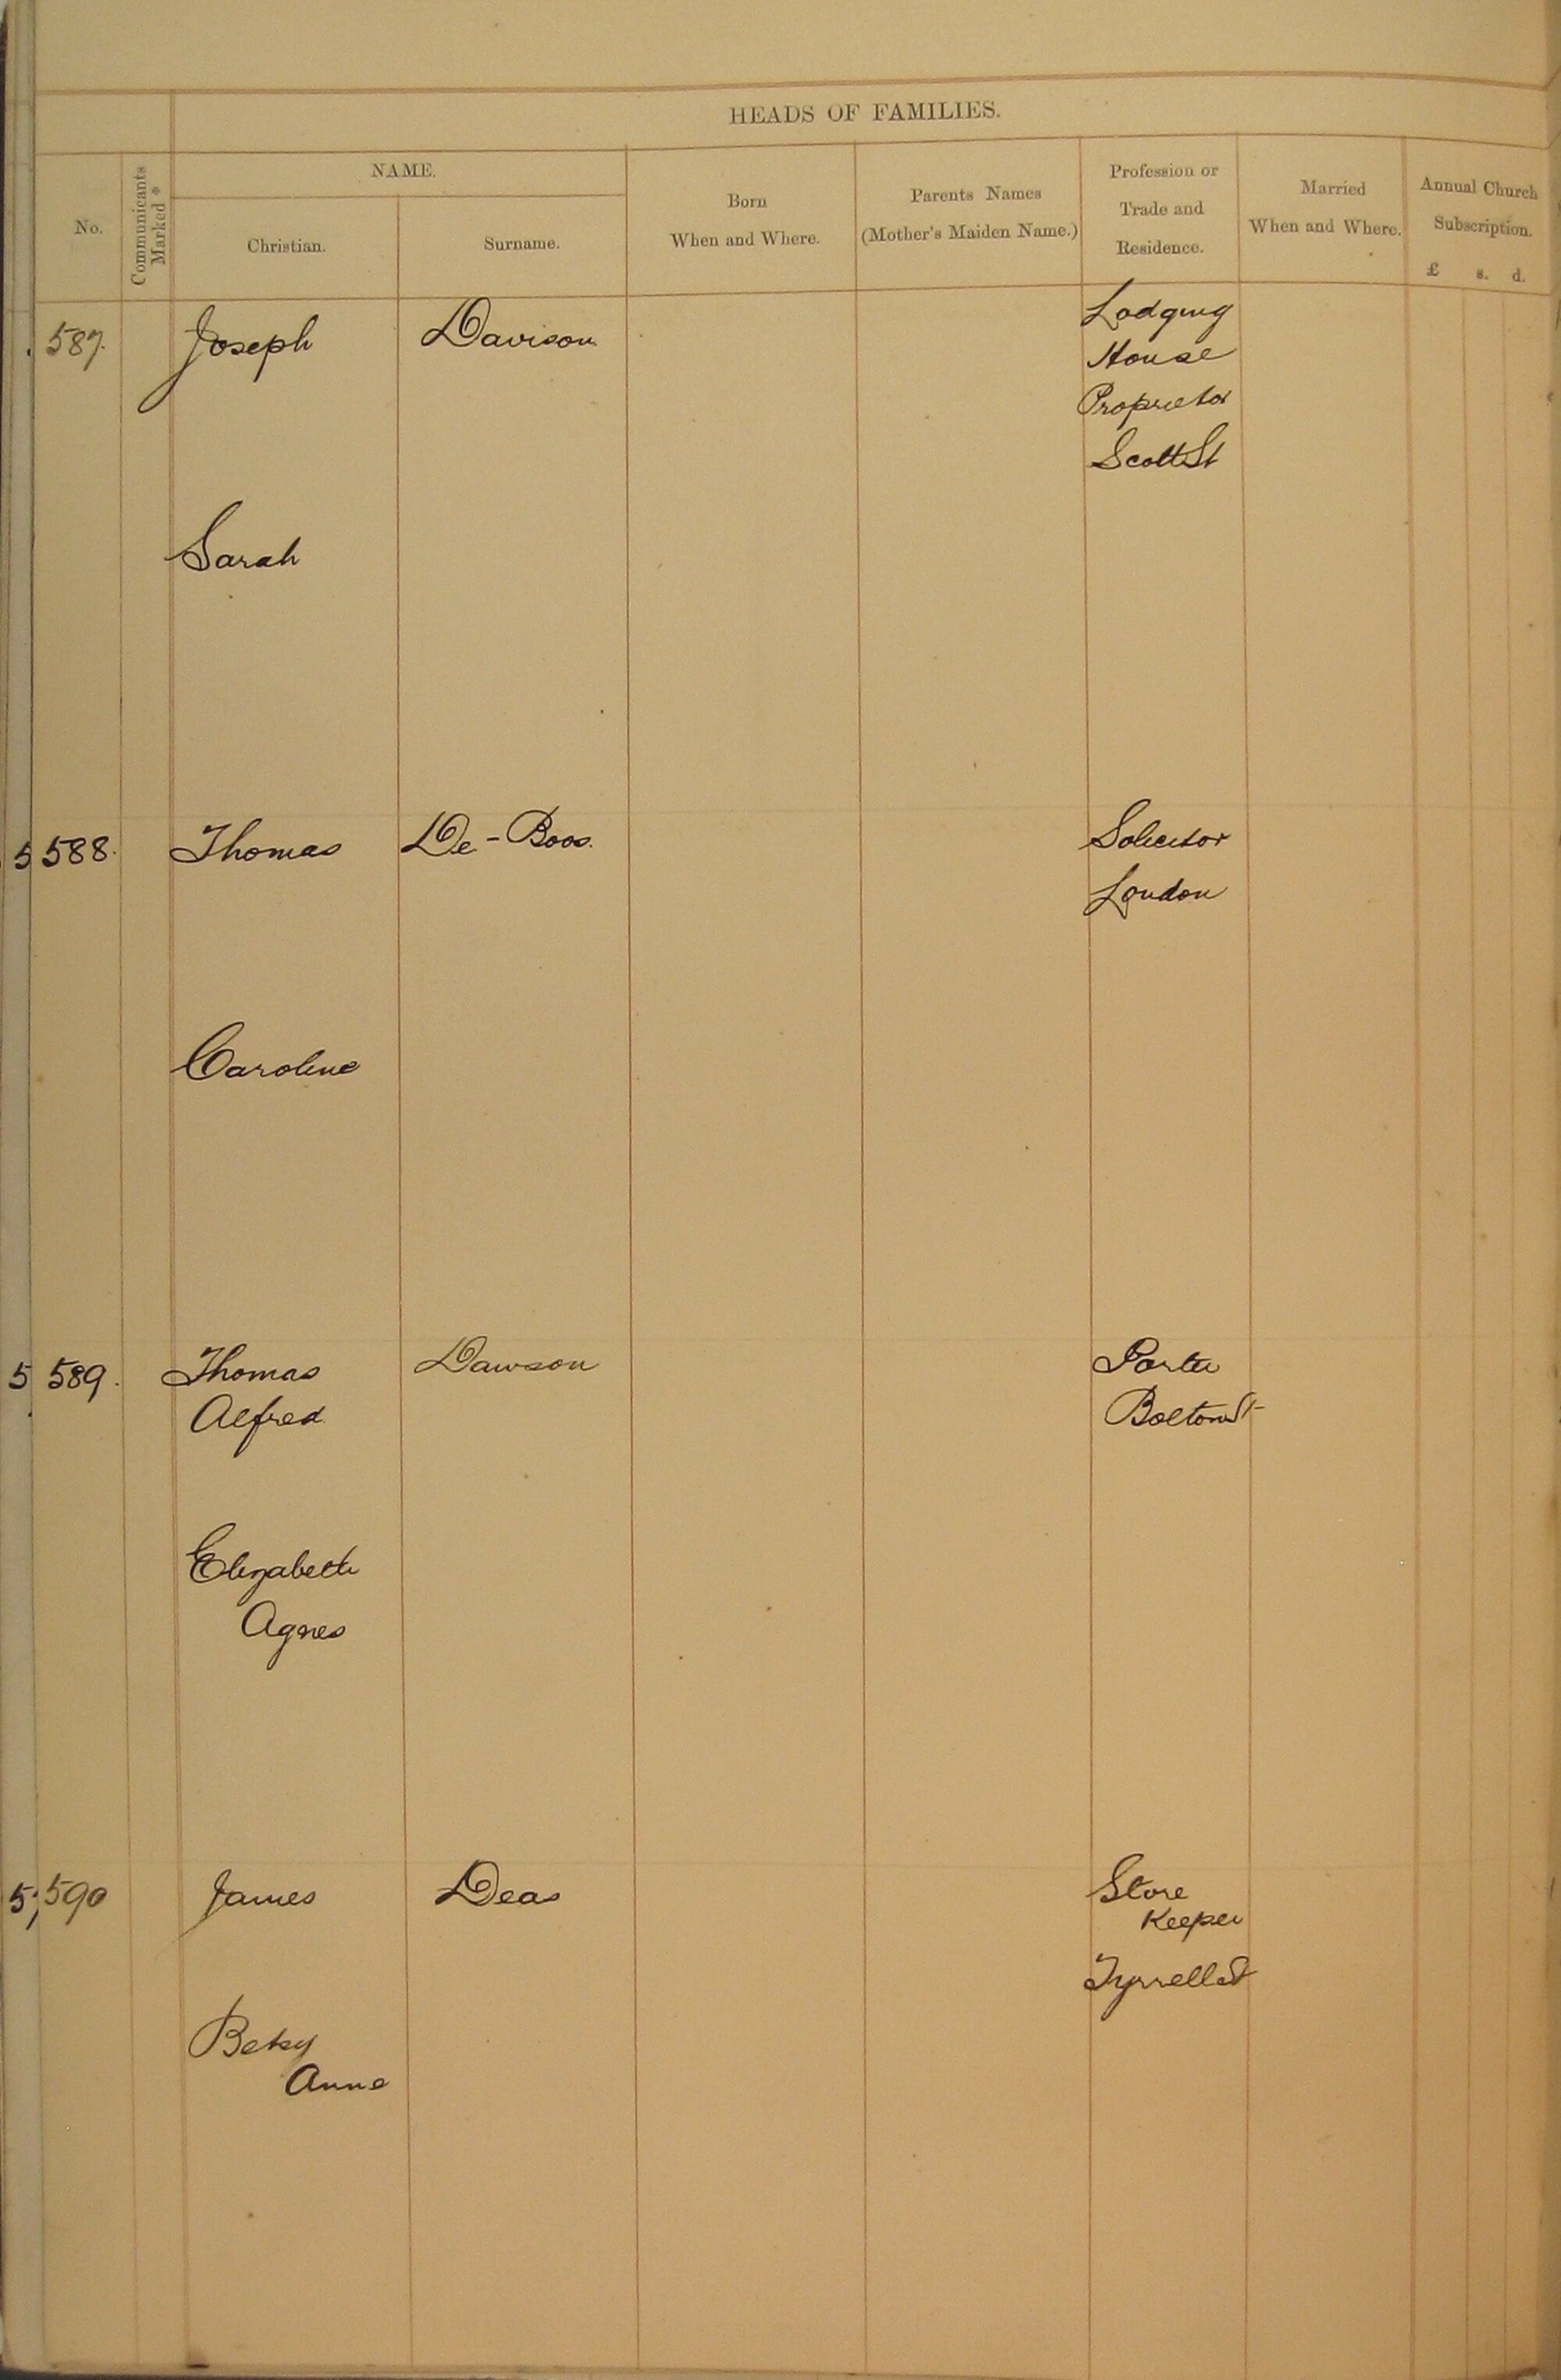 HEADS OF FAMILIES.
No.
Communicants Marked *
NAME.
Christian.
Surname.
Born
When and Where.
Parents Names
(Mother's Maiden Name.)
Profession or
Trade and
Residence.
Married
When and Where.
Annual Church
Subscription.
£ s. d.
587. Joseph Davison Lodging
House
Proprietor
Scott St
Sarah
5 588. Thomas De-Boos. Solicitor
London
Caroline
5 589. Thomas Dawson Porter
Alfred Bolton St
Elizabeth
Agnes
5, 590 James Deas Store
Keeper
Tyrrell St
Betsy
Anne